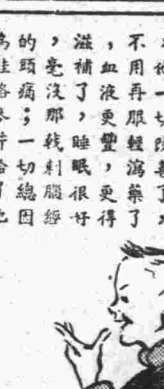 不用再服輕瀉藥了
，血液更豐，更得
滋補了，睡眠很好
，毫沒那戟刺腦經
的頭痛；一切總因